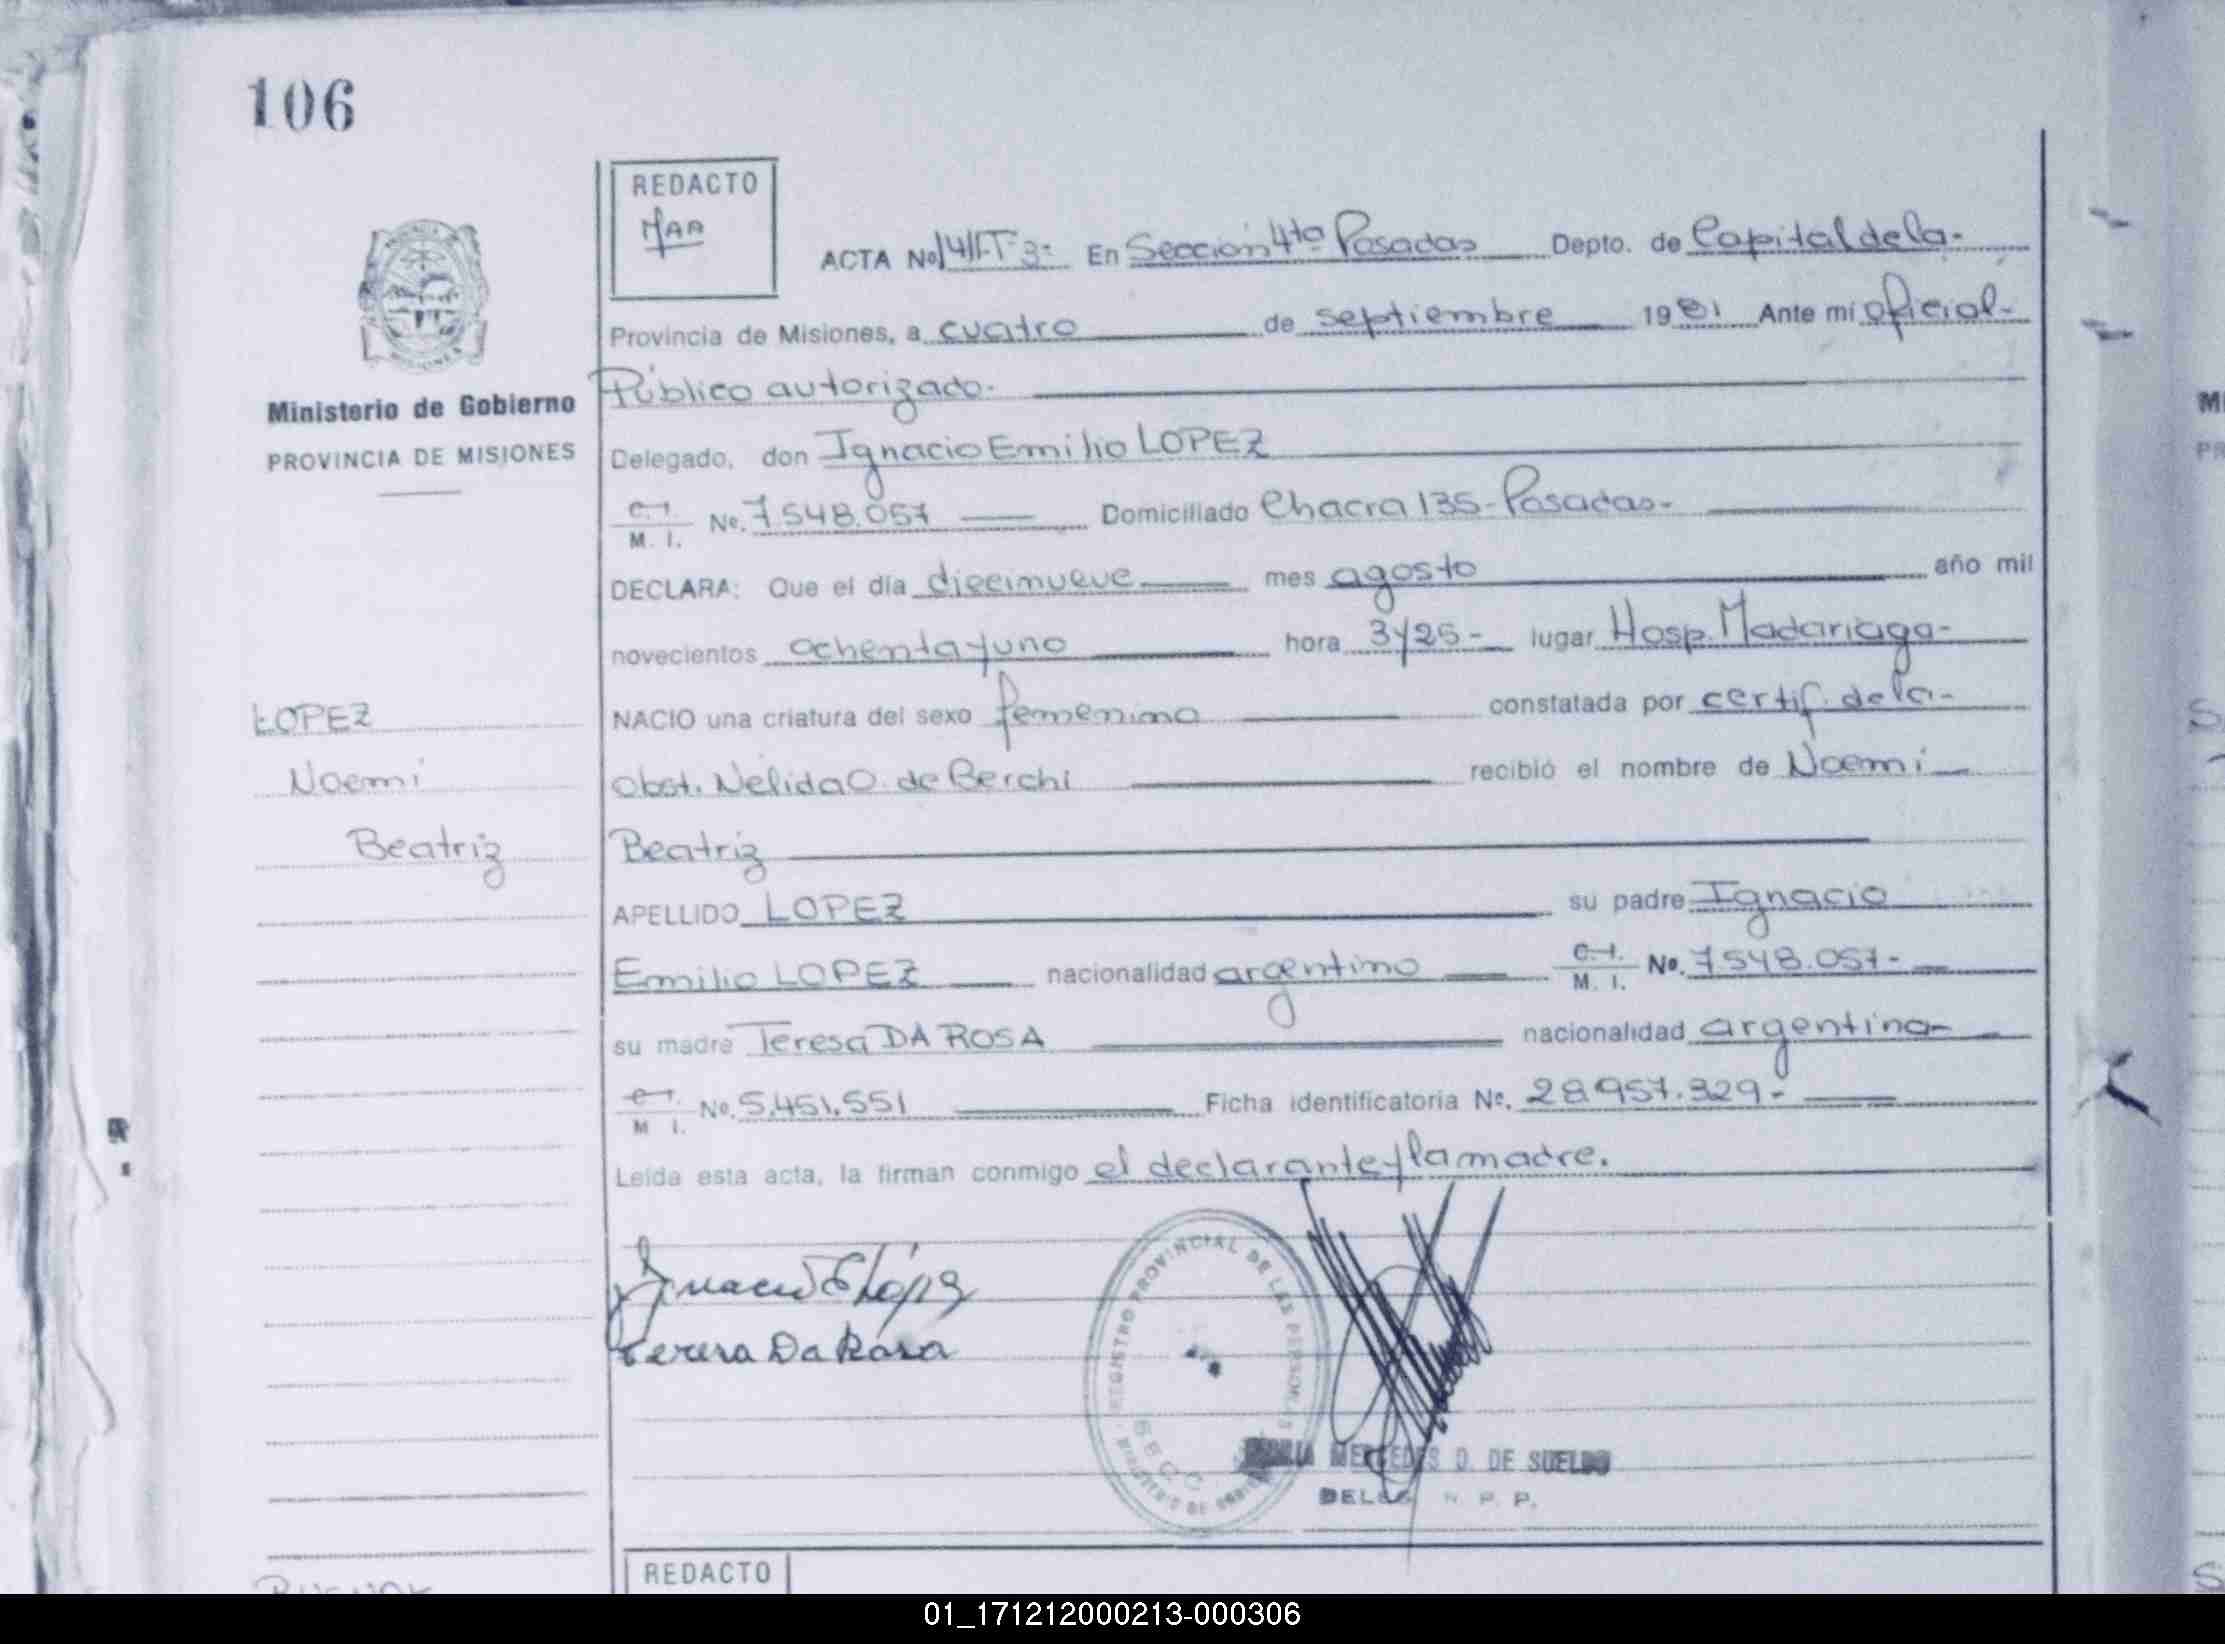 106
REDACTO
MAA
ACTA No 141-T-3- En Sección 4ta Posadas Depto. de Capital de la-
Provincia de Misiones, a cuatro de septiembre 1981 Ante mi oficial-
Público autorizado.
Ministerio de Gobierno
PROVINCIA DE MISIONES
Delegado, don Ignacio Emilio LOPEZ
C.I. M. I. No. 7548.057 Domiciliado Chacra 135-Posadas-
DECLARA: Que el día diecinueve mes agosto año mil
novecientos ochenta y uno hora 3y25- lugar Hosp. Madariaga-
LOPEZ
NACIO una criatura del sexo femenino constatada por certif. de la-
Noemí
Obst. Nélida O. de Berchi recibió el nombre de Noemí
Beatriz
Beatriz
APELLIDO LOPEZ su padre Ignacio
Emilio LOPEZ nacionalidad argentino C.I. M. I. No. 7548.057-
su madre Teresa DA ROSA nacionalidad argentina-
C.I. M I. No. 5.451.551 Ficha identificatoria No. 28.957.329-
Leída esta acta, la firman conmigo el declarante y la madre.
Ignacio E López
Teresa Da Rosa
REGISTRO PROVINCIAL DE LAS PERSONAS
MERCEDES D. DE SUELDO
R. P. P.
REDACTO
01_171212000213-000306